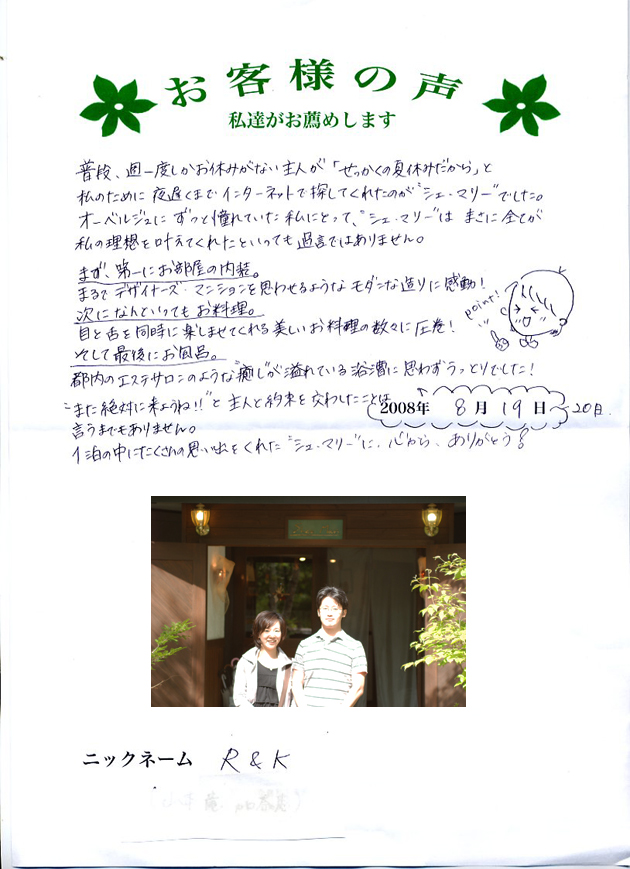 お客様の声
私達がお薦めします
普段、週一度しかお休みがない主人が「せっかくの夏休みだから」と
私のために夜遅くまでインターネットで探してくれたのが"シェ・マリー"でした。
オーベルジュにずっと憧れていた私にとって、"シェ・マリー"はまさに全てが
私の理想を叶えてくれたといっても過言ではありません。
まず、第一にお部屋の内装。
まるでデザイナーズ・マンションを思わせるようなモダンな造りに感動!
point!
次になんといってもお料理。
目と舌を同時に楽しませてくれる美しいお料理の数々に圧巻!
そして最後にお風呂。
都内のエステサロンのような"癒し"が溢れている浴漕に思わずうっとりでした!
"また絶対に来ようね!!"と主人と約束を交わしたことは
2008年 8月 19日 ~20日.
言うまでもありません。
1泊の中にたくさんの思い出をくれた"シェ・マリー"に、心から、ありがとう!
ニックネーム R & K